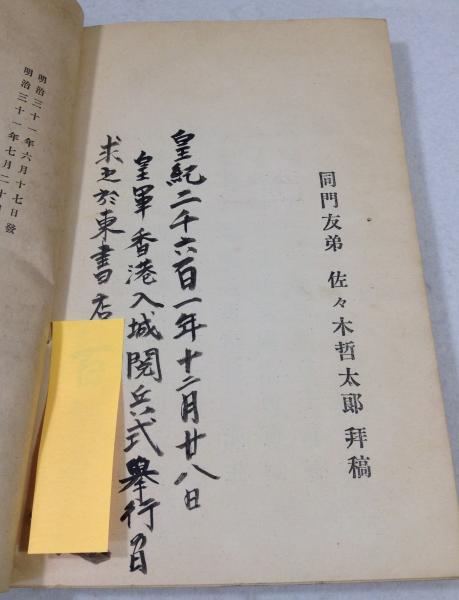 同門友弟 佐々木哲太郎 拜稿
皇紀二千六百一年十二月廿八日
皇軍香港入城閲兵式擧行の日
求之於東書店
明治三十一年六月十七日發
明治三十一年七月二十